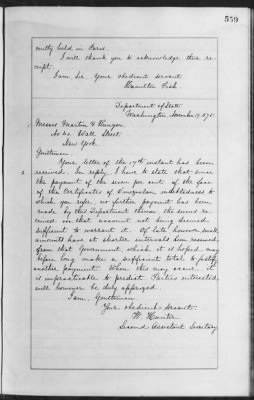 559
cently held in Paris.
I will thank you to acknowledge their re-
ceipt.
I am, Sir, Your obedient servant,
Hamilton Fish
Department of State
Washington, November 19, 1875.
Messrs Martin & Runyon
No 42 Wall Street
New York.
Gentlemen
Your letter of the 17th instant has been
received. In reply, I have to state that since
the payment of the seven per cent of the face
of the Certificates of Venezuelan indebtedness to
which you refer, no further payment has been
made by this Department thereon the sums re-
ceived on that account not being deemed
sufficient to warrant it. Of late however small
amounts have at shorter intervals been received
from that Government, which it is hoped may
before long make a sufficient total to justify
another payment. When this may occur, it
is impracticable to predict. Parties interested
will however be duly apprized.
I am, Gentlemen
Your obedient servant,
W. Hunter
Second Assistant Secretary